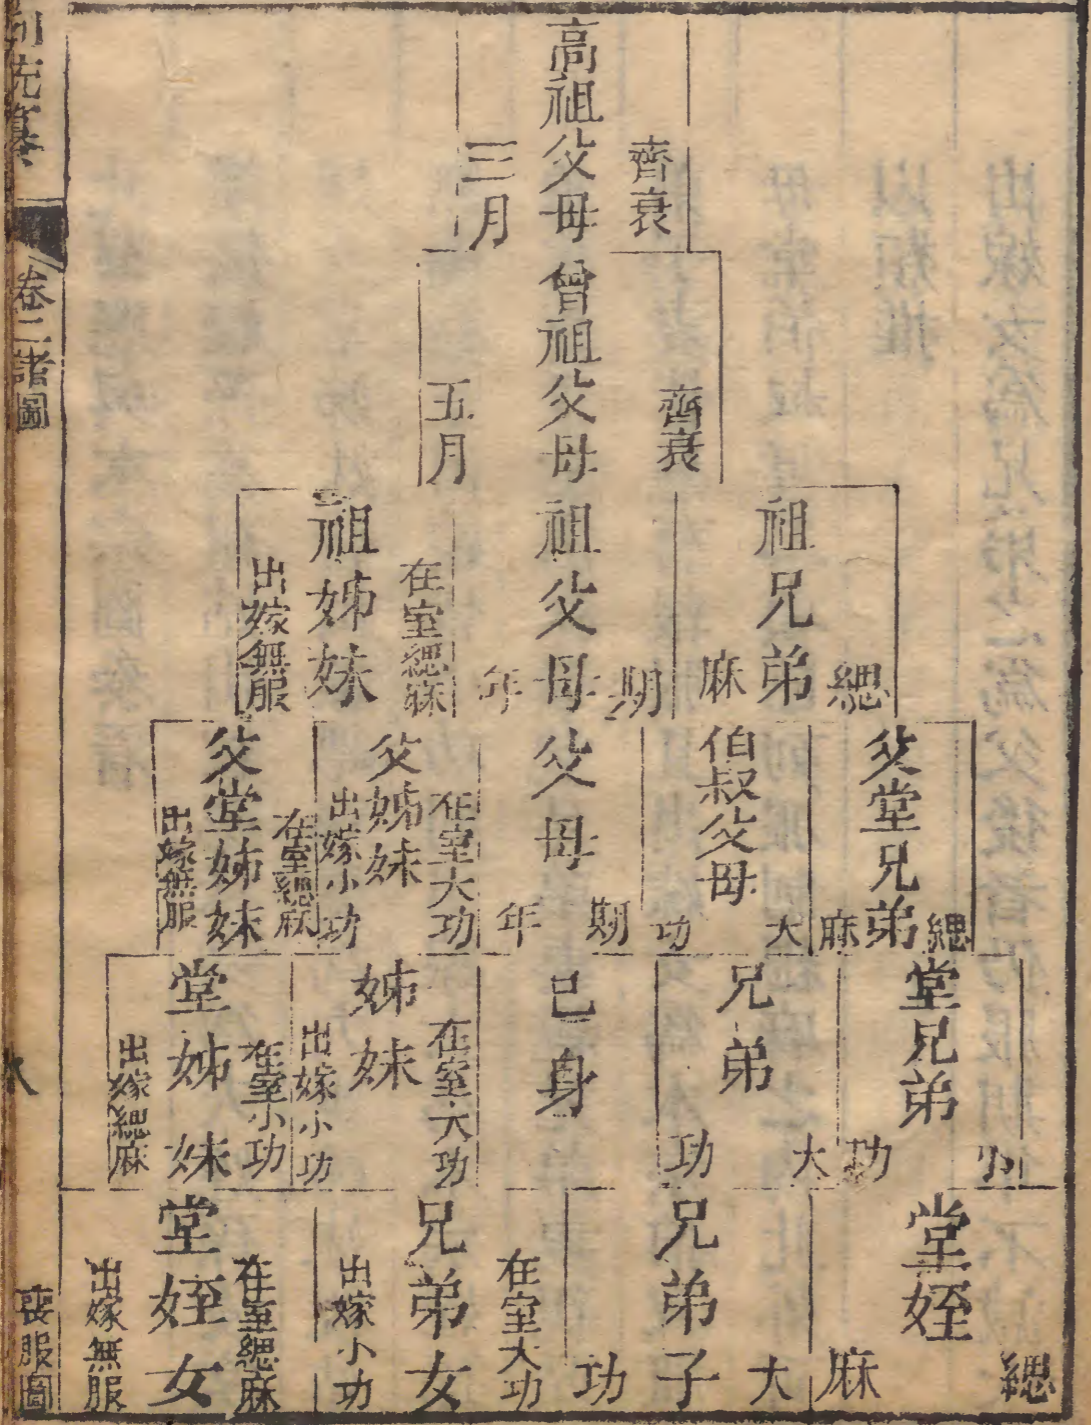 高祖父母 齊衰 三月
曾祖父母 齊衰 五月
祖兄弟 緦麻
祖父母 期年
祖姊妹 在室緦麻 出嫁無服
父堂兄弟 緦麻
伯叔父母 大功
父母 期年
父姊妹 在室大功 出嫁小功
父堂姊妹 在室緦麻 出嫁無服
堂兄弟 小功
兄弟 大功
己身
姊妹 在室大功 出嫁小功
堂姊妹 在室小功 出嫁緦麻
堂姪 緦麻
兄弟子 大功
兄弟女 在室大功 出嫁小功
堂姪女 在室緦麻 出嫁無服
卷二諸圖
喪服圖